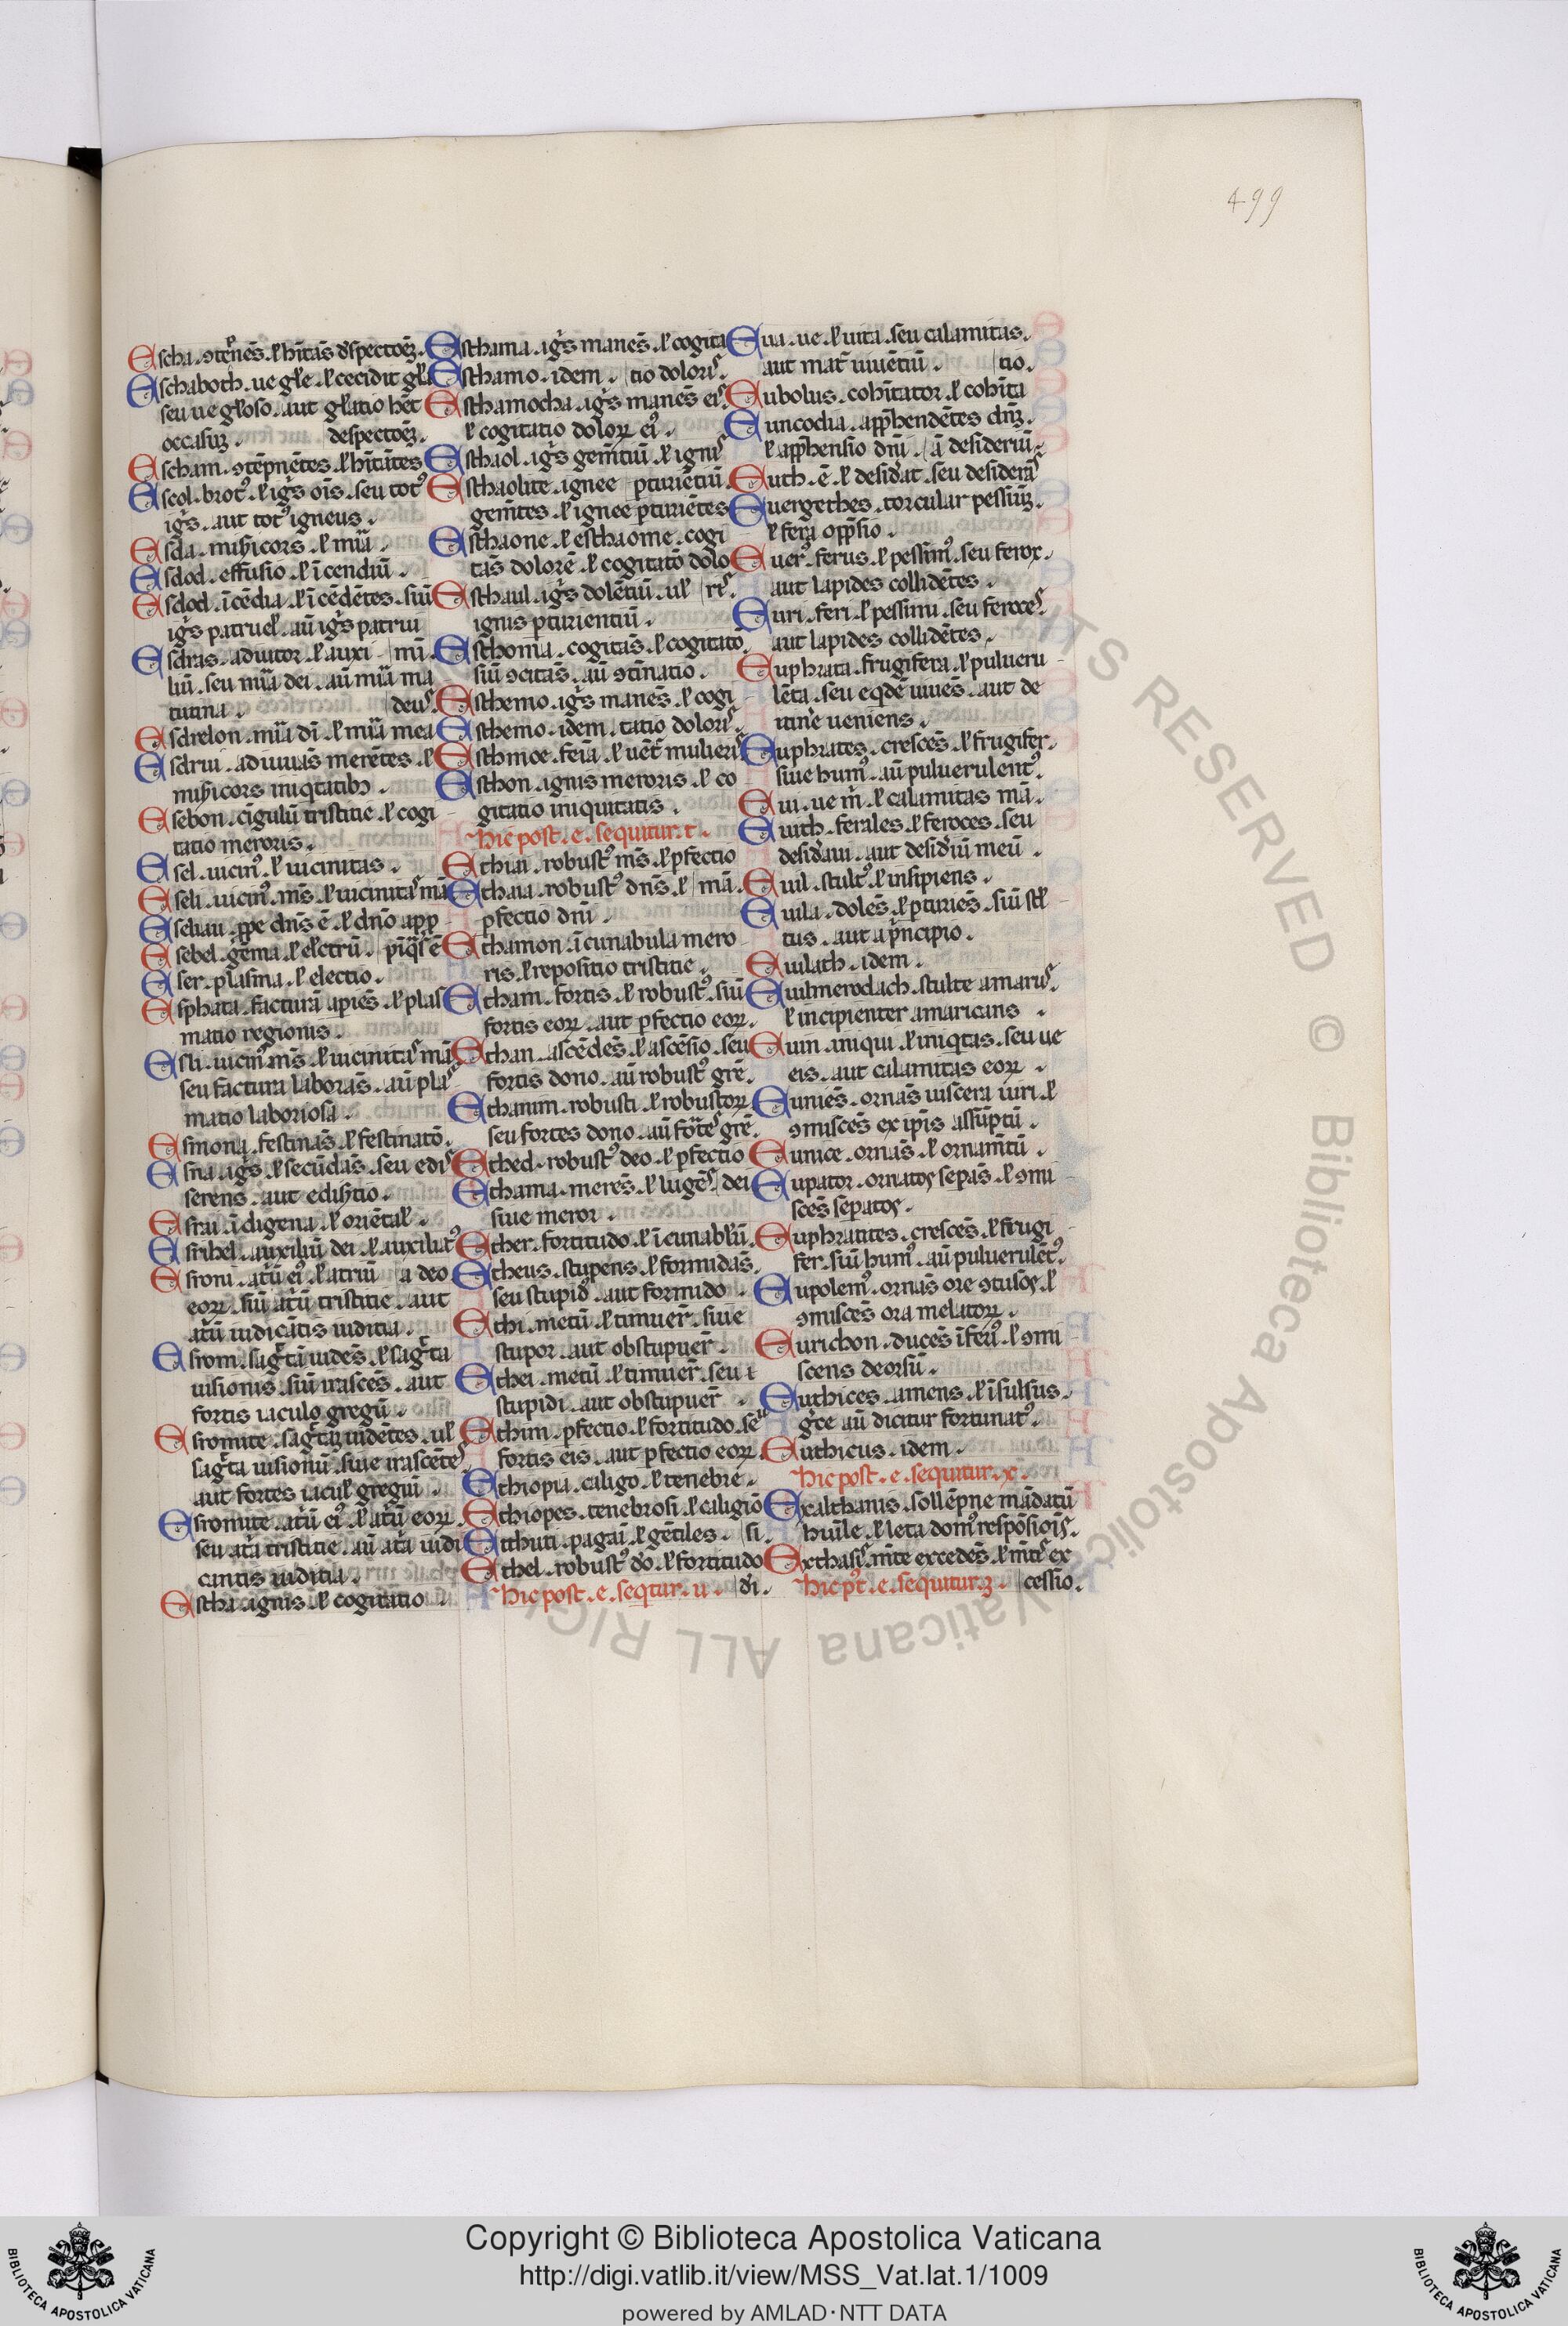 499
Escha . ꝯtēnēs . ł hītās dspectoēʒ .
Eschaboth . ue głe . ł cecidit gła
seu ue głoso . aut głatio hēt
occasuʒ . despectoēʒ .
Escham . ꝯtēpnētes . ł hītātes
Escol . brotꝰ . ł igˢ oīs . seu totꝰ
igˢ . aut totꝰ igneus .
Esda . miẜicors . ł mīa .
Esdod . effusio . ł īcendiū .
Esdod . īcēdia . ł īcēdētes . siū
igˢ patruel . aū igˢ patrui
Esdras . adiutor . ł auxi mī .
liū . seu mīa dei . aū mīa ma
tutina . deuˢ .
Esdrelon . mīa dī . ł mīa mea
Esdrui . adiuuās merētes . ł
miẜicors iniqtatibꝫ .
Esebon . cīgulū tristitie . ł cogi
tatio meroris .
Esel . uicinꝰ . ł uicinitas .
Eseli . uicinꝰ mˢ . ł uicinitaˢ mā
Eseliau . ꝓpe dnˢ ē . ł dno app
Esebel . gēma . ł electrū . piqˢ ē
Eser . plasma . ł electio .
Esphata . factura apiēs . ł plas
matio regionis .
Esli . uicinꝰ mˢ . ł uicinitaˢ mā
seu factura laborās . aū plaˢ
matio laboriosa .
Esmona . festinās . ł festinatō .
Esna . igˢ . ł secūdās . seu ediˢ
serens . aut ediẜtio .
Esrai . īdigena . ł oriētal .
Esrihel . auxiliū dei . ł auxiliatꝰ
Esroni . atriū eiꝰ . ł atriū a deo
eoꝝ . siū atriū tristitie . aut
atriū iudicātis iuditia .
Esrom . sagittā uidēs . ł sagitta
uisionis . siū irascēs . aut
fortis iaculo gregū .
Esromite . sagittaʒ uidētes . ul
sagitta uisionū . siue irascēteˢ
aut fortes iacul gregū .
Esromite . atriū eiꝰ . ł atriū eoꝝ .
seu atria tristitie . aū atria iudi
cantis iuditia .
Estha . ignis . ł cogitatio .
Esthama . igˢ manēs . ł cogita
Esthamo . idem . tio doloriˢ .
Esthamocha . igˢ manēs eiˢ .
ł cogitatio doloꝝ eiꝰ .
Esthaol . igˢ gemītiū . ł igniˢ
Esthaolite . ignee ꝑturiētiū .
gemītes . ł ignee ꝑturiētes
Esthaone . ł esthaome . cogi
tās dolorē . ł cogitatō dolo
Esthaul . igˢ dolētiū . ul riˢ .
ignis ꝑturientiū .
Esthoma . cogitās . ł cogitatō .
siū ꝯcitās . aū ꝯtīnatio .
Esthemo . igˢ manēs . ł cogi
Esthemo . idem . tatio doloriˢ .
Esthmoe . feīa . ł uēt mulieriˢ
Esthon . ignis meroris . ł co
gitatio iniquitatis .
Hic post . e . sequitur . t .
Ethai . robustꝰ mˢ . ł ꝑfectio
Ethaia . robustꝰ dnˢ . ł mā .
ꝑfectio dnī .
Ethamon . īcunabula mero
ris . ł repositio tristitie .
Etham . fortis . ł robustꝰ . siū
fortis eoꝝ . aut ꝑfectio eoꝝ .
Ethan . ascēdēs . ł ascēsio . seu
fortis dono . aū robustꝰ grē .
Ethanim . robusti . ł robustoꝝ
seu fortes dono . aū forteˢ grē .
Ethed . robustꝰ deo . ł ꝑfectio
Ethama . merēs . ł lugēs . dei
siue meror .
Ether . fortitudo . ł īcunablū .
Etheus . stupens . ł formidās .
seu stupidꝰ . aut formido .
Ethi . metū . ł timuer . siue
stupor . aut obstupuer .
Ethei . metū . ł timuer . seu
stupidi . aut obstupuer .
Ethim . ꝑfectio . ł fortitudo . seu
fortis eis . aut ꝑfectio eoꝝ .
Ethiopia . caligo . ł tenebre .
Ethiopes . tenebrosi . ł caligiō
Etthuti . pagaī . ł gētiles . si .
Ethel . robustꝰ do . ł fortitudo
Hic post . e . seqtur . u . di .
Eua . ue . ł uita . seu calamitas .
aut mat uiuētiū . tio .
Eubolus . cohītator . ł cohīta
Euncodia . app̄hendētes dnʒ .
ł app̄hensio dnī . ā desideriū .
Euth . ē . ł desidat . seu desideraˢ
Euergethes . torcular pessiūʒ .
ł fera opp̄sio .
Euerꝰ . ferus . ł pessimꝰ . seu ferox .
aut lapides collidētes .
Euri . feri . ł pessimi . seu feroceˢ .
aut lapides collidētes .
Euphrata . frugifera . ł pulueru
lēta . seu eqdē uiuēs . aut de
itine ueniens .
Euphrates . crescēs . ł frugifer .
siue humꝰ . aū puluerulentꝰ .
Eui . ue mī . ł calamitas mā .
Euith . ferales . ł feroces . seu
desidaui . aut desidiū meū .
Euil . stultꝰ . ł insipiens .
Euila . dolēs . ł ꝑturiēs . siū stł
tus . aut a p̄ncipio .
Euilath . idem .
Euilmerodach . stulte amaruˢ .
ł incipienter amaricans .
Euin . iniqui . ł iniqtas . seu ue
eis . aut calamitas eoꝝ .
Euniēs . ornās uiscera iuri . ł
ꝯmiscēs ex ipis assūptū .
Eunice . ornās . ł ornamītū .
Eupator . ornatoꝝ sepās . ł ꝯmi
scēs sepatoꝝ .
Euphratites . crescēs . ł frugi
fer . siū humꝰ . aū puluerulētꝰ .
Eupolemꝰ . ornās ore ꝯtusoꝝ . ł
ꝯmiscēs ora melatoꝝ .
Eurichon . ducēs īferiꝰ . ł ꝯmi
scens deorsū .
Euthices . amens . ł īsulsus .
gce aū dicitur fortunatꝰ .
Euthicus . idem .
Hic post . e . sequitur . x .
Exalthanis . sollēpne mādatū
huīle . ł leta domꝰ respōsioīs .
Exthasiˢ . mīte excedēs . ł mītˢ ex
Hic pꝰt . e . sequitur . ʒ . cessio .
HTS RESERVED © Biblioteca Apostolica Vaticana ALL RIG
BIBLIOTECA APOSTOLICA VATICANA
Copyright © Biblioteca Apostolica Vaticana
http://digi.vatlib.it/view/MSS_Vat.lat.1/1009
powered by AMLAD·NTT DATA
BIBLIOTECA APOSTOLICA VATICANA